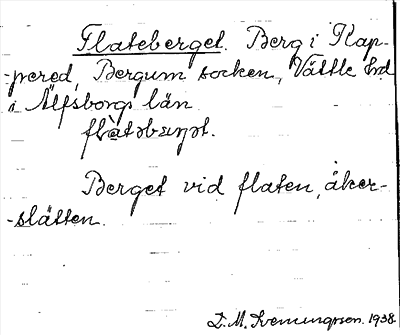 Flateberget. Berg i Kap-
-pered, Bergum socken, Vättle hd
i Älfsborgs län.
Berget vid flaten, åker-
-slätten.
D. M. Svenungsson. 1938.